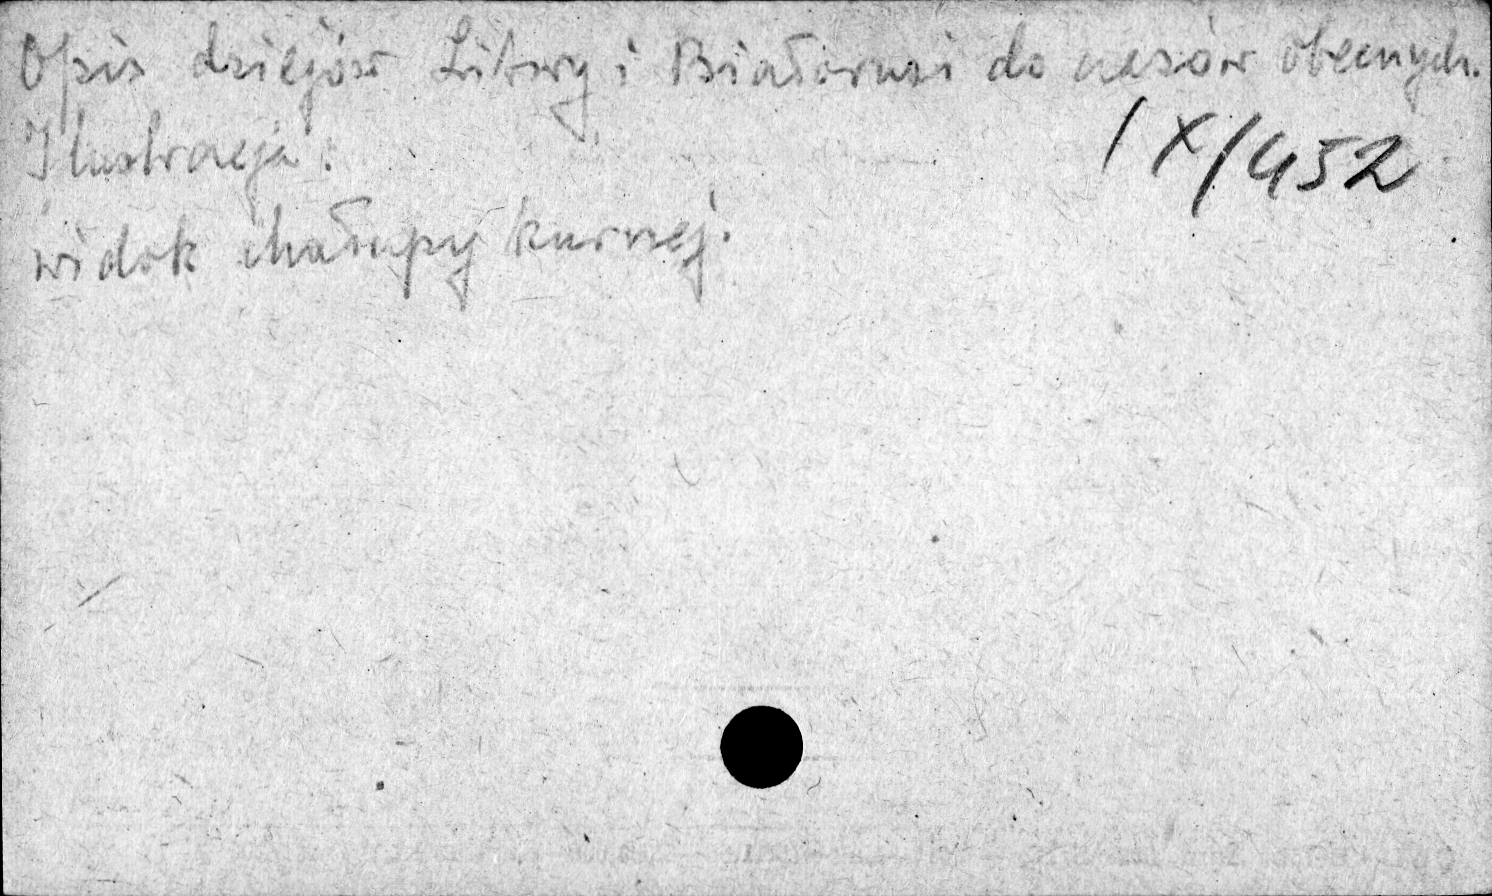 Opis dziejów Litwy i Białorusi do czasów obecnych.
Ilustracja:
IX/452
widok chałupy kurnej.